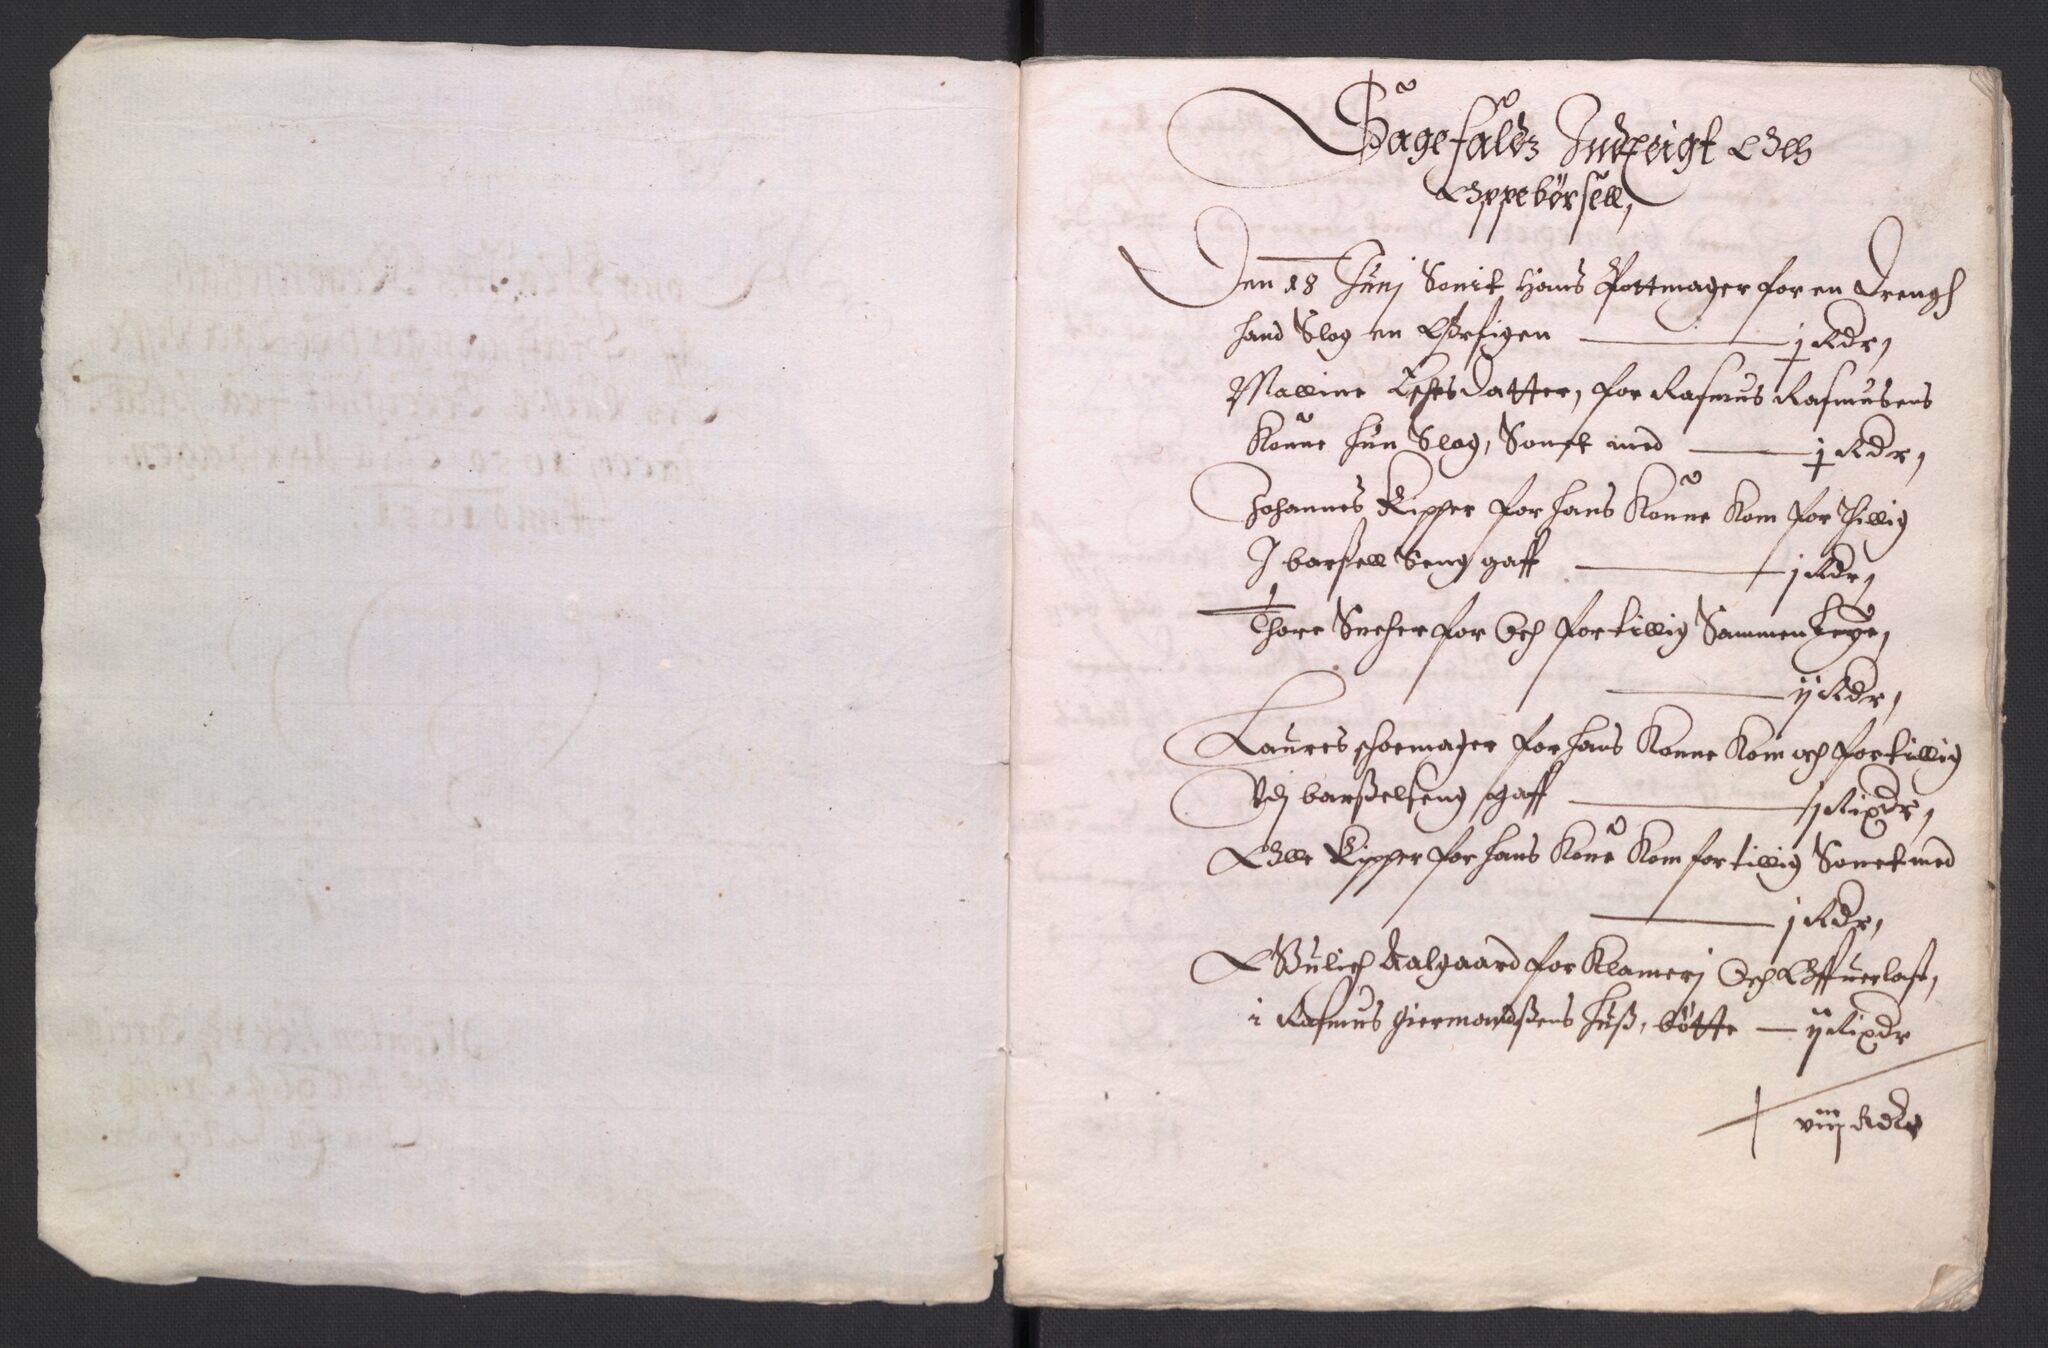 Sagefaldz Indteigt Och
Oppebørsell,
Den 18 Junj Sonit Hans Pottmager for en Drengh
hand Slog en Ørfigen j Rdr,
Malline datter, for Rasmus Rasmusens
Konne hun Slog, Sonet med j Rdr,
Johannes Kipper for hans Konne Kom for thillig
J barßell Seng gaff j Rdr,
Thore for Och for tillig Sammen Leye,
ij Rdr,
Laures schoemager for hans Konne Kom och for tillig
Udj barßelseng gaff j Rixdr,
Olle Kipper for hans Kone Kom for tillig Sonet med
j Rdr,
Wulich Aalgaard for Klamerj Och Offuerlast,
i Rasmus Giermandßens huß, bøtte ij Rixdr
viiij Rdlr